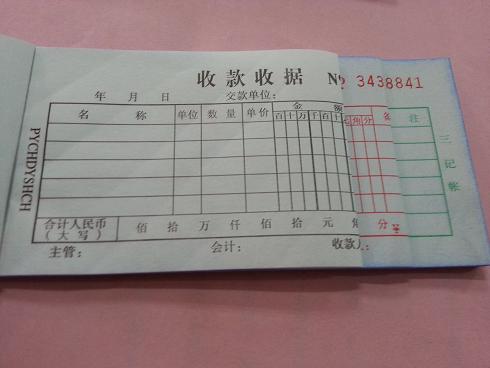 收款收据 № 3438841
年 月 日 交款单位:
名 称 单位 数量 单价 金 额
百十万千百十 角分 备 注
合计人民币
(大写) 佰 拾 万 仟 佰 拾 元 角 分 ¥
主管: 会计: 收款人:
PYCHDYSHCH
三记帐